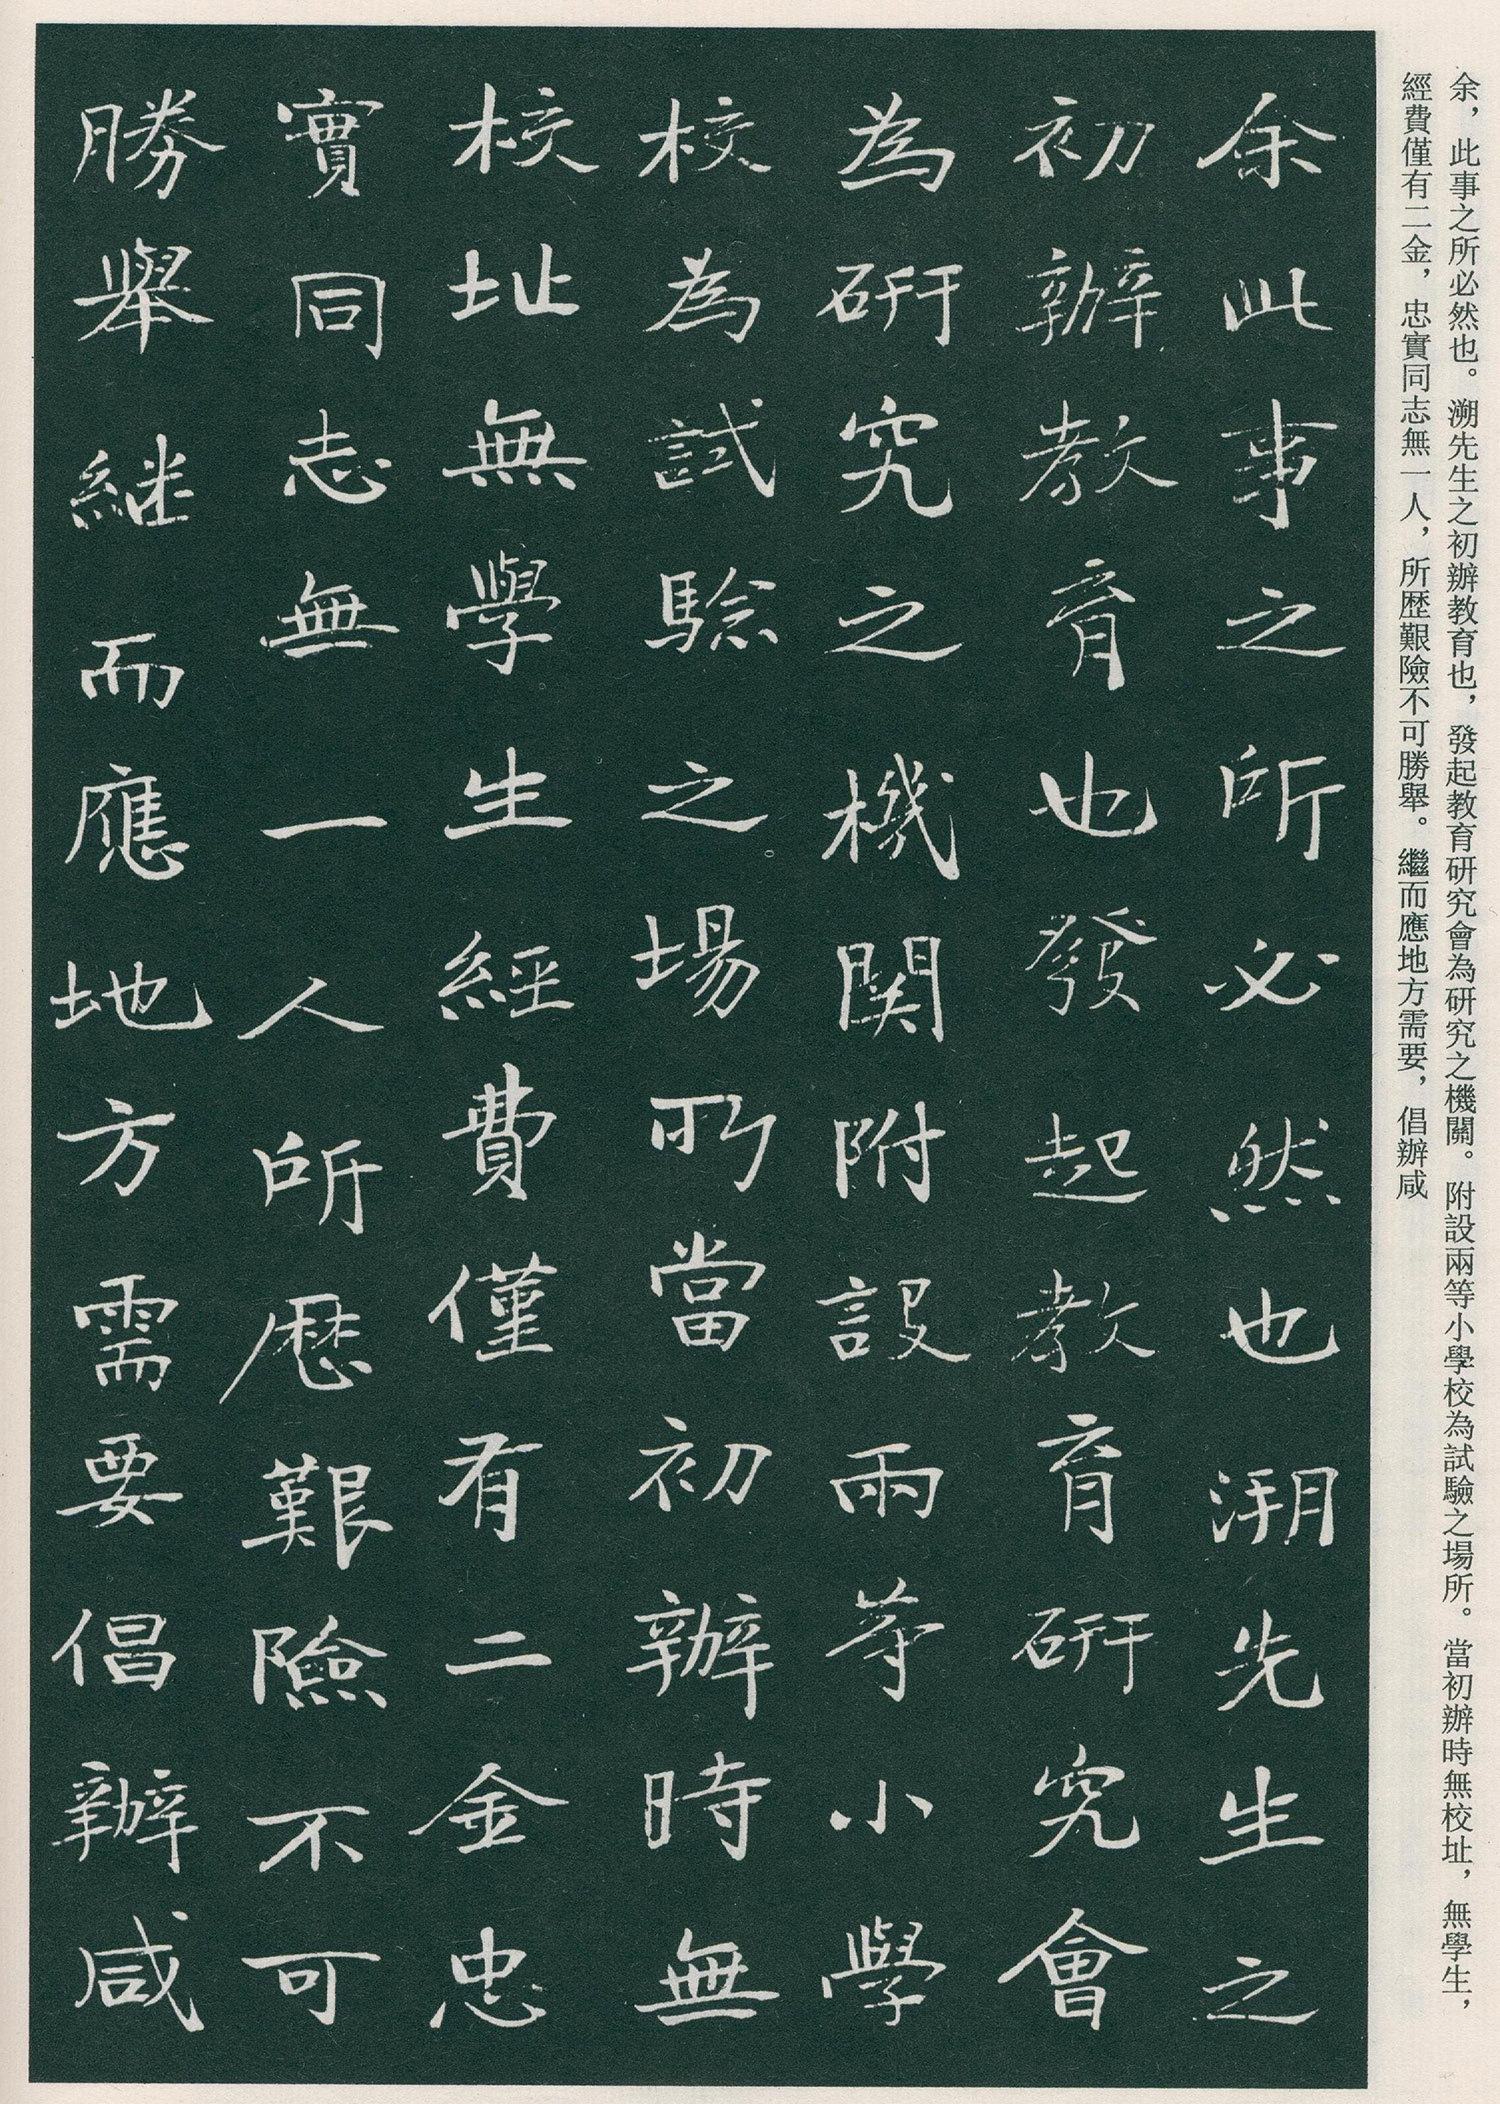 余，此事之所必然也。溯先生之初辦教育也，發起教育研究會為研究之機關。附設兩等小學校為試驗之場所。當初辦時無校址，無學生，
經費僅有二金，忠實同志無一人，所歷艱險不可勝舉。繼而應地方需要，倡辦咸
余此事之所必然也溯先生之
初辦教育也發起教育研究會
為研究之機関附設兩等小學
校為試驗之場所當初辦時無
校址無學生經費僅有二金忠
實同志無一人所歷艱險不可
勝舉継而應地方需要倡辦咸